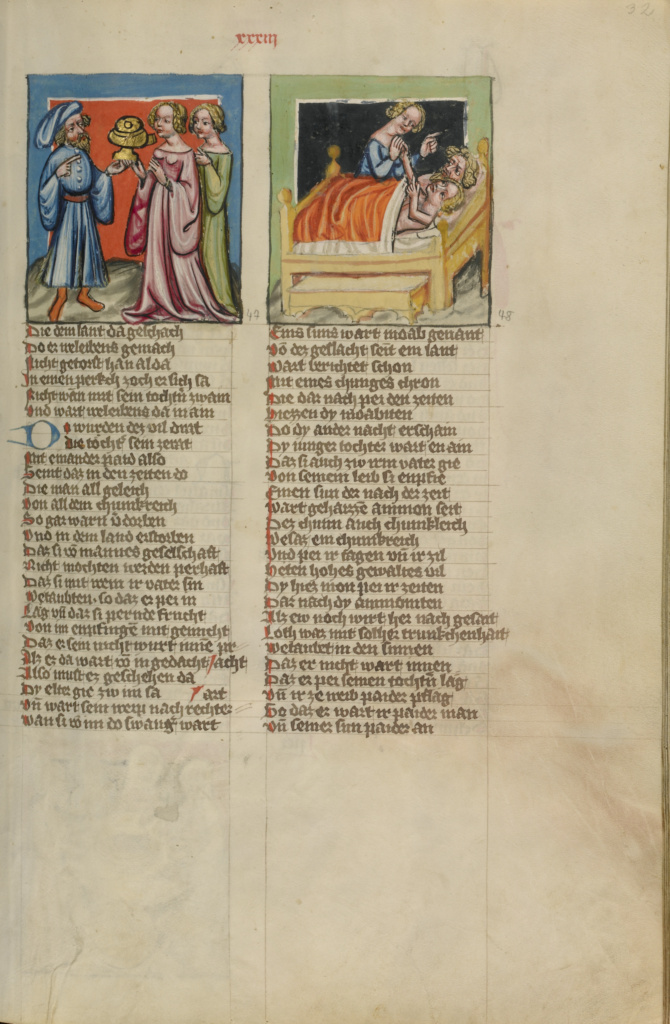 xxxiii
32
47
Die dem lant da geschach
Do er weleibens gemach
Nicht getorst han alda
In einen perkch zoch er sich sa
Nicht wan mit sein tochtn zwain
Und wart weleibens da in ain
Do wurden des vil drat
die tocht sein ze rat
Mit einander paid also
Seint daz in den zeiten do
Die man all geleich
Von all dem chunkreich
So gar warn v̄dorben
Und in dem land erstorben
Daz si võ mannes geselschaft
Nicht mochten werden perhaft
Daz si mit wein ir vater sin
Wetaubten, so daz er pei in
Lag vn̄ daz si pernde frucht
Von im enpfinge mit genucht
Daz er sein nicht wurt
Als er da wart võ in gedacht acht
Also must ez geschehen da
Dy elter gie zw im sa art
Vn̄ wart sein weip nach rechter
Wan si võ im do swang wart
48
Eins suns wart moab genant
Võ der geslacht seit ein lant
Wart berichtet schon
Mit eines chunges chron
Die dar nach pei den zeiten
Hiezzen dy moabiten
Do dy ander nacht erschain
Dy iunger tochter wart en ain
Daz si auch zw irm vater gie
Von seinem leib si enpfie
Einen sun der nach der zeit
Wart gehaizzē ammon seit
Dez chunn auch chunkleich
Wesaz ein chunkreich
Und pei ir tagen vn̄ ir zil
Heten hohes gewaltes vil
Dy hiez mon pei ir zeiten
Dar nach dy ammoniten
Als ew noch wirt her nach gesait
Loth waz mit solher trunkchenhait
Wetaubet in den sinnen
Daz er nicht wart innen
Daz er pei seinen tochtn̄ lag
Vn̄ ir ze weib paider pflag
So daz er wart ir paider man
Vn̄ seiner sun paider an